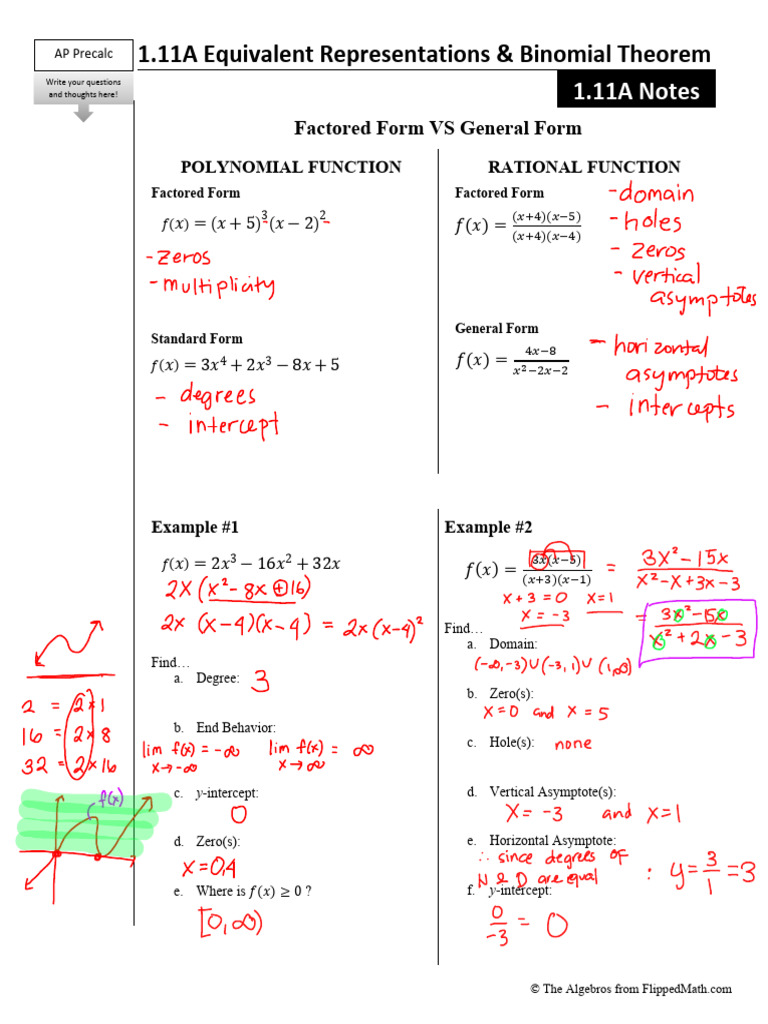 AP Precalc
1.11A Equivalent Representations & Binomial Theorem
Write your questions
and thoughts here!
1.11A Notes
Factored Form VS General Form
POLYNOMIAL FUNCTION
Factored Form
f(x) = (x + 5)³(x − 2)²
- zeros
- multiplicity
Standard Form
f(x) = 3x⁴ + 2x³ − 8x + 5
- degrees
- intercept
RATIONAL FUNCTION
Factored Form
f(x) = (x+4)(x−5) / (x+4)(x−4)
- domain
- holes
- zeros
- vertical
asymptotes
General Form
f(x) = 4x−8 / x²−2x−2
- horizontal
asymptotes
- intercepts
Example #1
f(x) = 2x³ − 16x² + 32x
2x (x² - 8x + 16)
2x (x-4)(x-4) = 2x(x-4)²
Find…
a. Degree: 3
b. End Behavior:
lim f(x) = -∞ lim f(x) = ∞
x→-∞ x→∞
c. y-intercept:
0
d. Zero(s):
x=0,4
e. Where is f(x) ≥ 0 ?
[0,∞)
2 = 2×1
16 = 2×8
32 = 2×16
f(x)
Example #2
f(x) = 3x(x−5) / (x+3)(x−1) = 3x² - 15x / x² - x + 3x - 3
x + 3 = 0 x = 1
x = -3
= 3x² - 15x / x² + 2x - 3
Find…
a. Domain:
(-∞,-3)∪(-3,1)∪(1,∞)
b. Zero(s):
x=0 and x=5
c. Hole(s): none
d. Vertical Asymptote(s):
x = -3 and x=1
e. Horizontal Asymptote:
∴ since degrees of
N & D are equal : y = 3/1 = 3
f. y-intercept:
0/-3 = 0
© The Algebros from FlippedMath.com